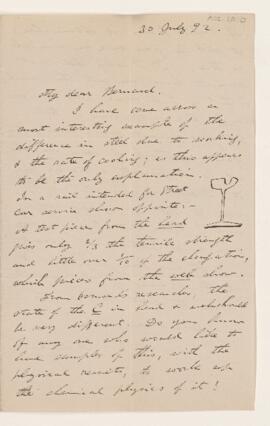 30 July 92.
My dear Bernard.
I have come across a
most interesting example of the
difference in steel due to working,
& the rate of cooling; as this appears
to be the only explanation.
In a rail intended for Street
Car service shown opposite; —
A test piece from the head
gives only 2/3 the tensile strength
and little over 1/10 of the elongation,
which pieces from the web show.
From researches, the
state of the C in head & web should
be very different; Do you know
of any one who would like to
have samples of this, with the
physical results, to work up
the chemical physics of it!